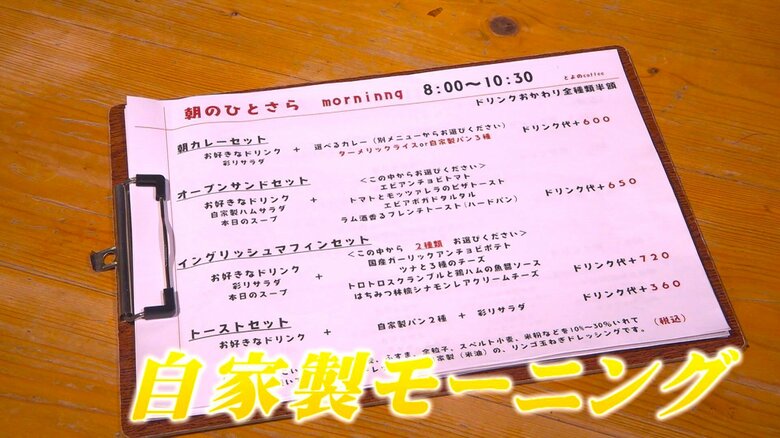 朝のひとさら morninng 8:00〜10:30 とよのcoffee
ドリンクおかわり全種類半額
朝カレーセット
お好きなドリンク + 選べるカレー(別メニューからお選びください) ドリンク代+600
彩りサラダ ターメリックライスor自家製パン3種
オープンサンドセット
<この中からお選びください>
お好きなドリンク エビアンチョビトマト ドリンク代+650
自家製ハムサラダ + トマトとモッツァレラのピザトースト
本日のスープ エビアボガドタルタル
ラム酒香るフレンチトースト(ハードパン)
イングリッシュマフィンセット
<この中から 2種類 お選びください>
お好きなドリンク 国産ガーリックアンチョビポテト ドリンク代+720
彩りサラダ + ツナと3種のチーズ
本日のスープ トロトロスクランブルと鶏ハムの魚醤ソース
はちみつ林檎シナモンレアクリームチーズ
トーストセット
お好きなドリンク + 自家製パン2種 + 彩りサラダ ドリンク代+360
(税込)
ふすま、全粒子、スペルト小麦、米粉などを10%〜30%いれて
(米油)の、リンゴ玉ねぎドレッシングです。
自家製モーニング